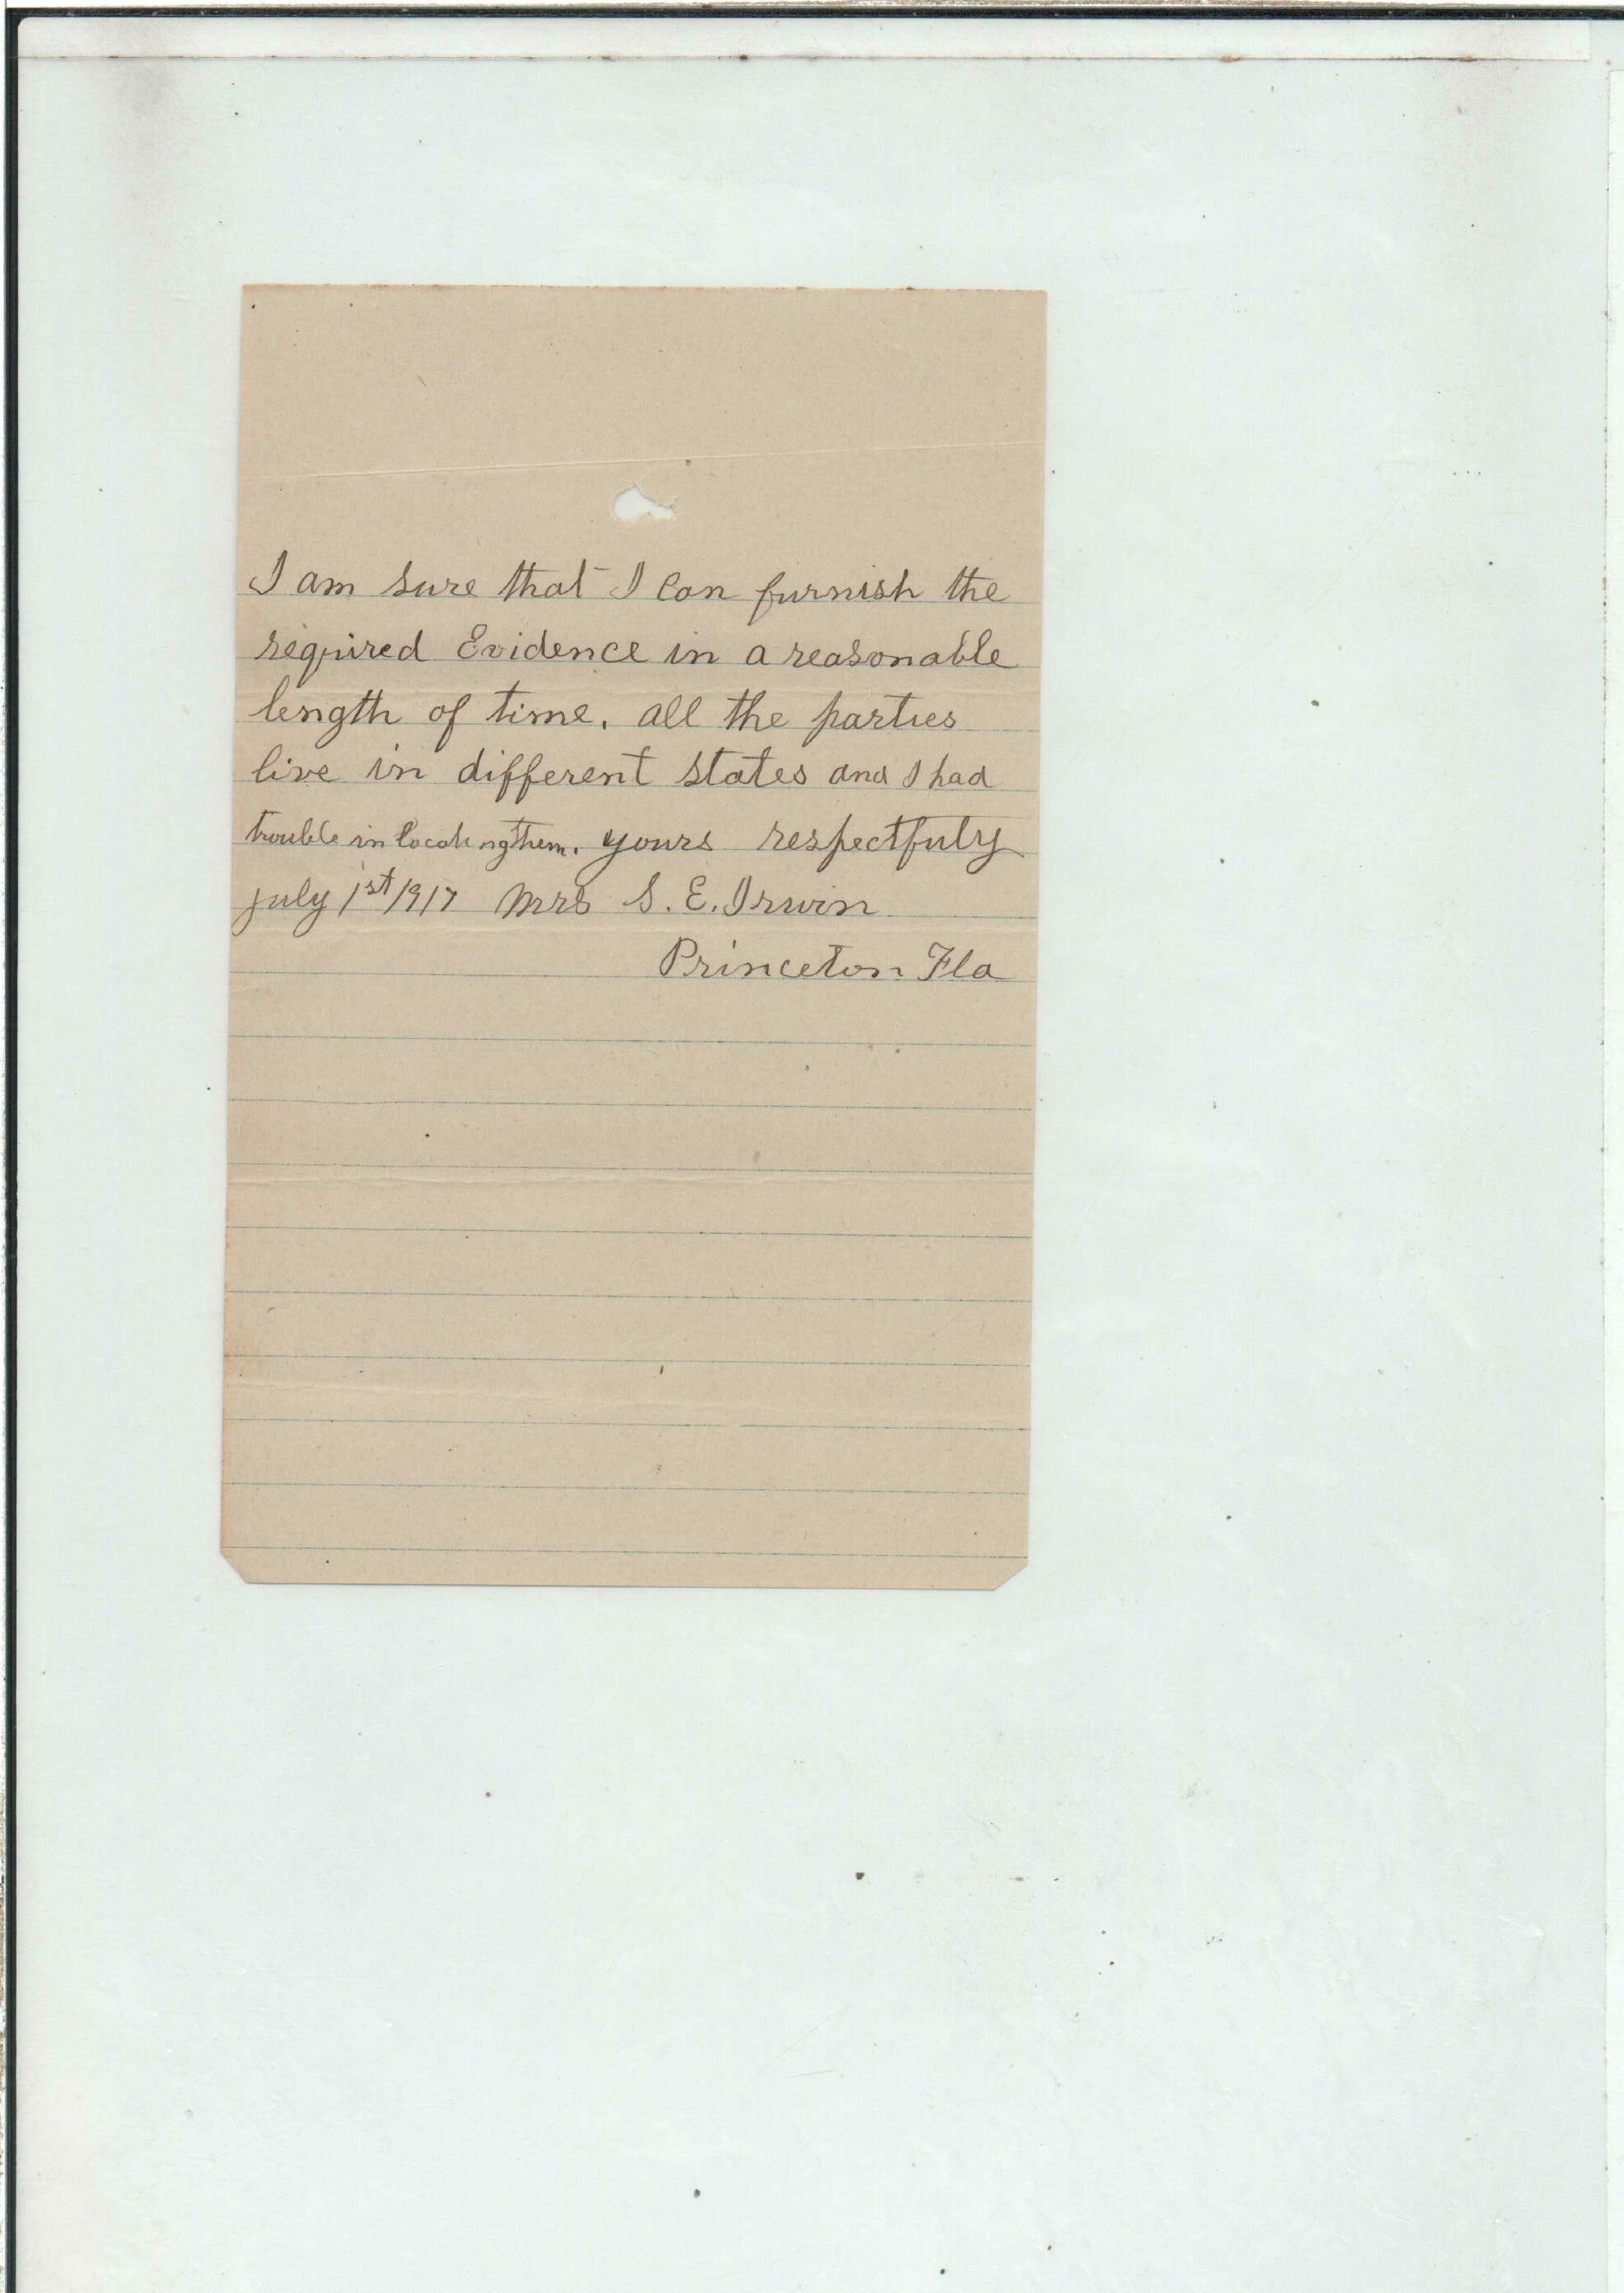 I am sure that I can furnish the
required Evidence in a reasonable
length of time. all the parties
live in different states and I had
trouble in locating them. yours respectfuly
july 1st 1917 Mrs S. E. Irwin
Princeton Fla